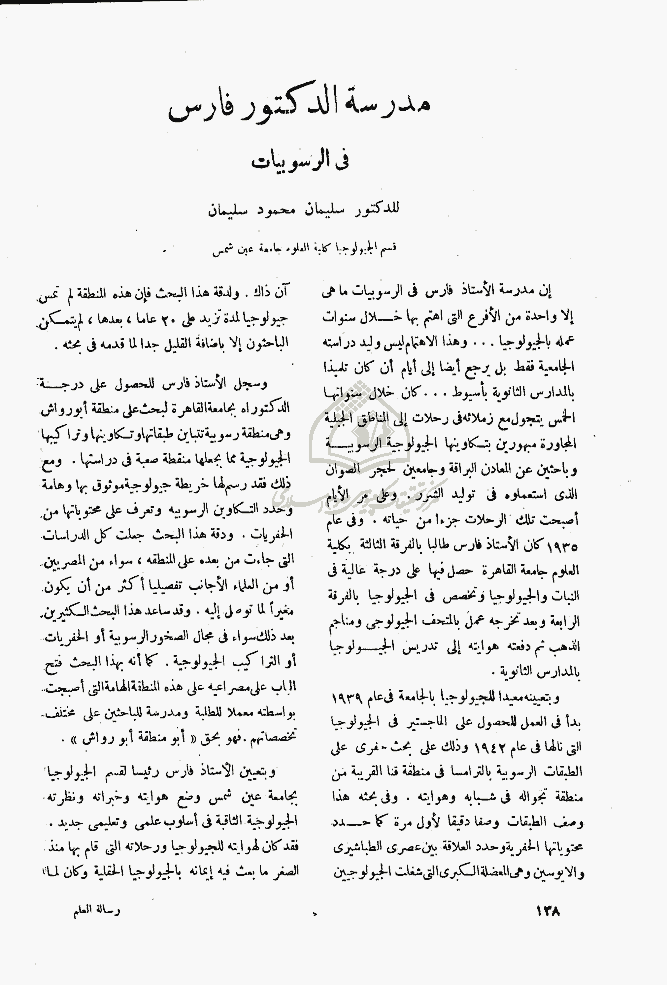 مدرسة الدكتور فارس
فى الرسوبيات
للدكتور سليمان محمود سليمان
قسم الجيولوجيا كلية العلوم جامعة عين شمس
إن مدرسة الأستاذ فارس فى الرسوبيات ما هى
إلا واحدة من الأفرع التى اهتم بها خلال سنوات
عمله بالجيولوجيا ... وهذا الاهتمام ليس وليد دراسته
الجامعية فقط بل يرجع أيضا إلى أيام أن كان تلميذا
بالمدارس الثانوية بأسيوط ... كان خلال سنواتها
الخمس يتجول مع زملائه فى رحلات إلى المناطق الجبلية
المجاورة مبهورين بتكاوينها الجيولوجية الرسوبية
وباحثين عن المعادن البراقة وجامعين لحجر الصوان
الذى استعملوه فى توليد الشرر . وعلى مر الأيام
أصبحت تلك الرحلات جزءا من حياته . وفى عام
١٩٣٥ كان الأستاذ فارس طالبا بالفرقة الثالثة بكلية
العلوم جامعة القاهرة حصل فيها على درجة عالية فى
النبات والجيولوجيا وتخصص فى الجيولوجيا بالفرقة
الرابعة وبعد تخرجه عمل بالمتحف الجيولوجى ومناجم
الذهب ثم دفعته هوايته إلى تدريس الجيولوجيا
بالمدارس الثانوية .
وبتعيينه معيدا للجيولوجيا بالجامعة فى عام ١٩٣٩
بدأ فى العمل للحصول على الماجستير فى الجيولوجيا
التى نالها فى عام ١٩٤٢ وذلك على بحث حفرى على
الطبقات الرسوبية بالترامسا فى منطقة قنا القريبة من
منطقة تجواله فى شبابه وهوايته . وفى بحثه هذا
وصف الطبقات وصفا دقيقا لأول مرة كما حدد
محتوياتها الحفرية وحدد العلاقة بين عصرى الطباشيرى
والايوسين وهى المعضلة الكبرى التى شغلت الجيولوجيين
آن ذاك . ولدقة هذا البحث فإن هذه المنطقة لم تمس
جيولوجيا لمدة تزيد على ٢٠ عاما ، بعدها ، لم يتمكن
الباحثون إلا باضافة القليل جدا لما قدمه فى بحثه .
وسجل الأستاذ فارس للحصول على درجة
الدكتوراه بجامعة القاهرة لبحث على منطقة أبو رواش
وهى منطقة رسوبية تتباين طبقاتها وتكاوينها وتراكيبها
الجيولوجية مما يجعلها منقطة صعبة فى دراستها . ومع
ذلك فقد رسم لها خريطة جيولوجية موثوق بها وهامة
وحدد التكاوين الرسوبيه وتعرف على محتوياتها من
الحفريات . ودقة هذا البحث جعلت كل الدراسات
التى جاءت من بعده على المنطقه ، سواء من المصريين
أو من العلماء الأجانب تفصيليا أكثر من أن يكون
مغيراً لما توصل إليه . وقد ساعد هذا البحث الكثيرين
بعد ذلك سواء فى مجال الصخور الرسوبية أو الحفريات
أو التراكيب الجيولوجية . كما أنه بهذا البحث فتح
الباب على مصراعيه على هذه المنطقة الهامة التى أصبحت
بواسطته معملا للطلبة ومدرسة للباحثين على مختلف
تخصصاتهم . فهو بحق « أبو منطقة أبو رواش » .
وبتعيين الأستاذ فارس رئيسا لقسم الجيولوجيا
بجامعة عين شمس وضع هوايته وخبراته ونظرته
الجيولوجية الثاقبة فى أسلوب علمى وتعليمى جديد .
فقد كان لهوايته للجيولوجيا ورحلاته التى قام بها منذ
الصغر ما بعث فيه إيمانه بالجيولوجيا الحقلية وكان لما
١٣٨
رسالة العلم